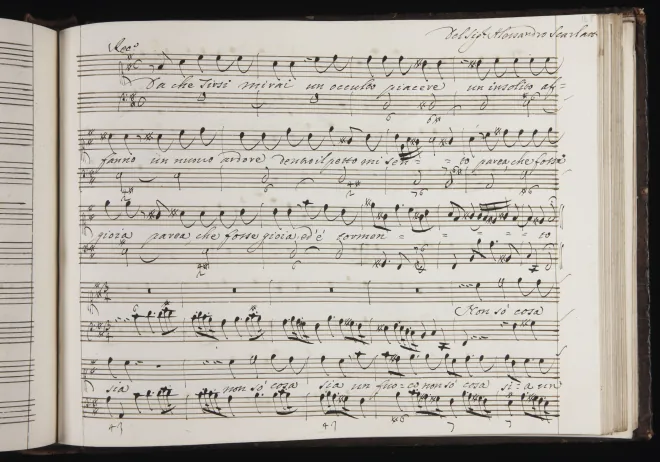 Rec.º
Del Sig.r Alessandro Scarlatti
Da che Tirsi mirai un occulto piacere un insolito af=
fanno un nuovo ardore dentro il petto mi sen - - to parea che fosse
gioia parea che fosse gioia ed'è tormen - - = = = to
Non só cosa
sia non só cosa sia un fuo=co non só cosa si=a un